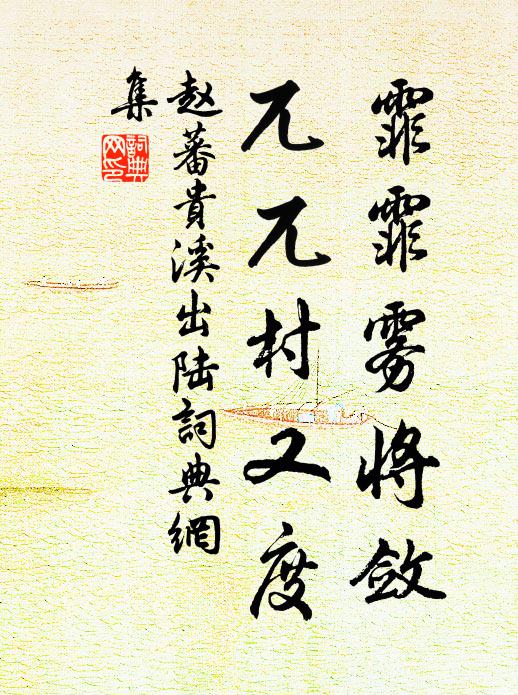 霏霏雾将敛
兀兀村又度
赵蕃貴溪出陆詞典網
集
詞典
网印